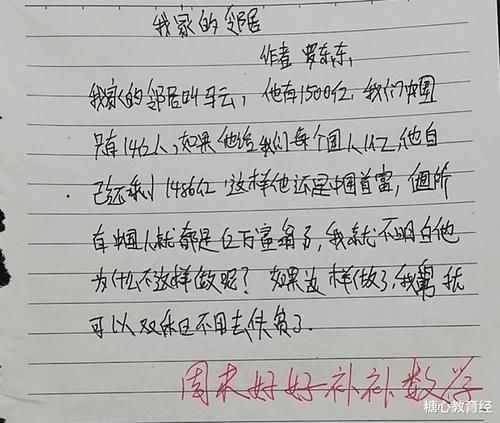 我家的邻居
作者 罗东东
我家的邻居叫马云，他有1500亿，我们中国
只有14亿人，如果他给我们每个国人1亿，他自
己还剩1486亿，这样他还是中国首富，但所
有中国人就都是亿万富翁了，我就不明白他
为什么不这样做呢？如果这样做了，我爸就
可以双休日不用去供货了．
周末好好补补数学
糖心教育经